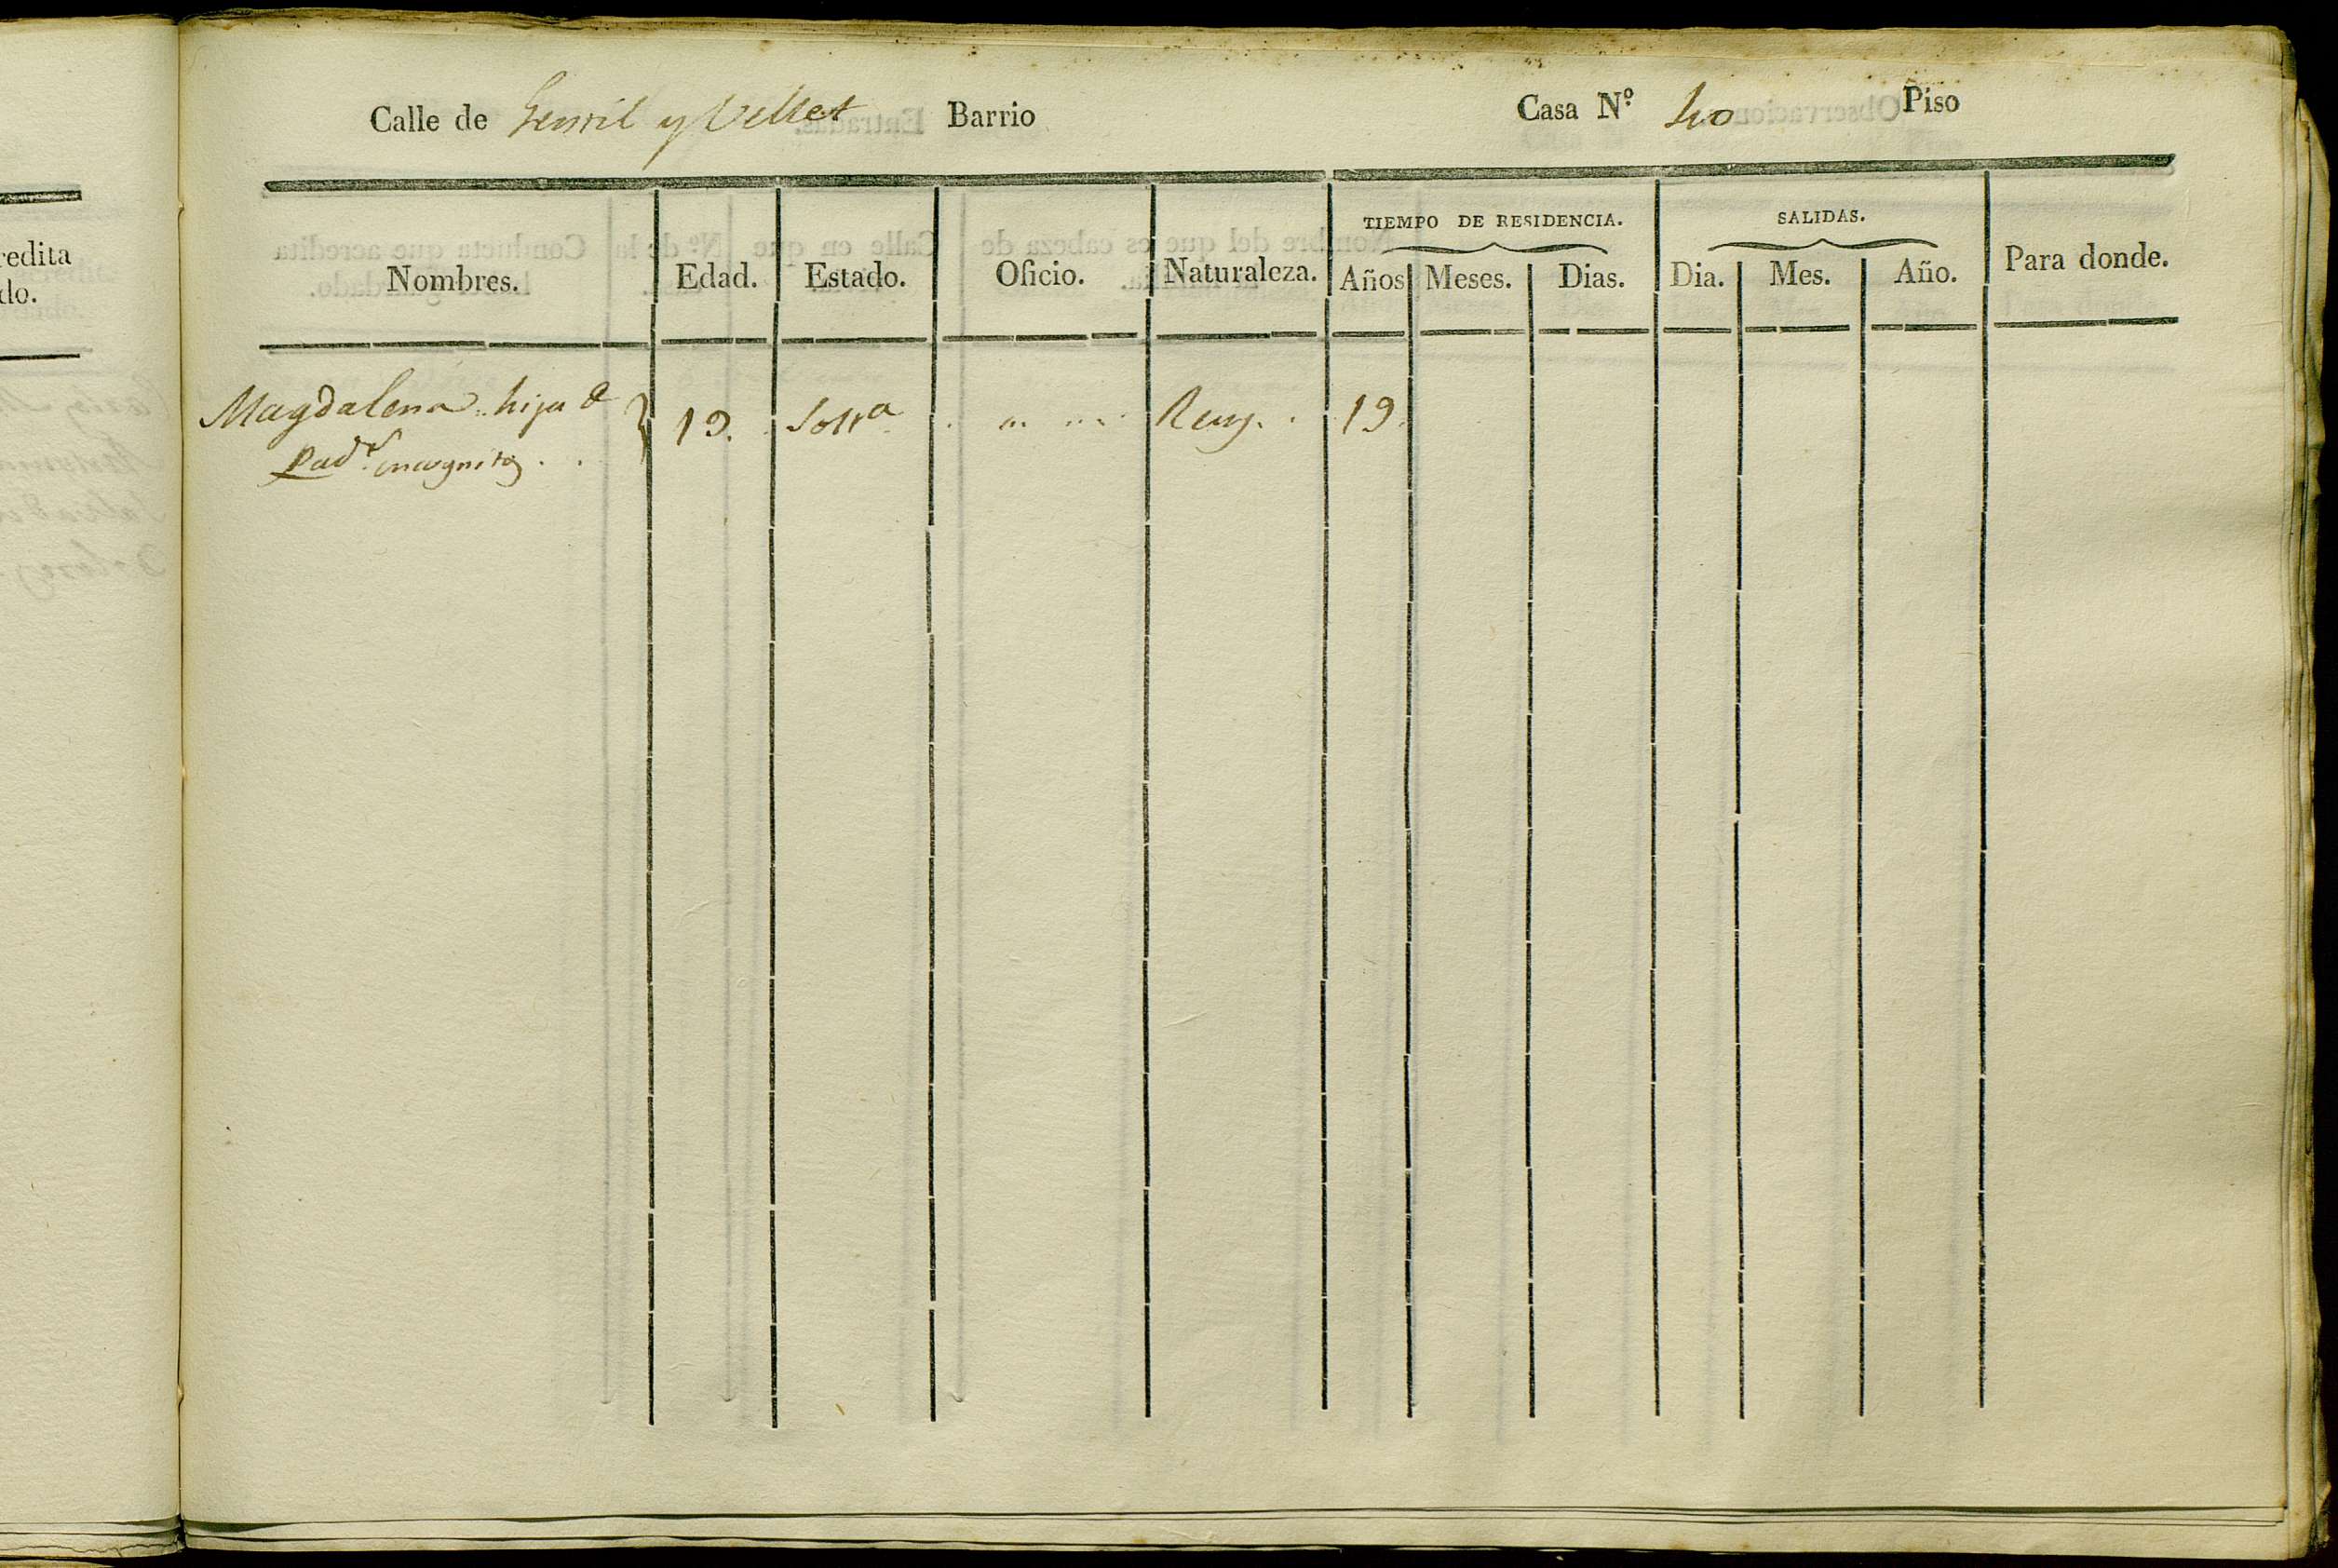 redita
do.
Calle de Gentil y Vellet Barrio Casa N.º 40 Piso
TIEMPO DE RESIDENCIA. SALIDAS.
Nombres. Edad. Estado. Oficio. Naturaleza. Años Meses. Dias. Dia. Mes. Año. Para donde.
Magdalena hija d 19. Solt.ª Reus. 19.
Pad.s incognitos